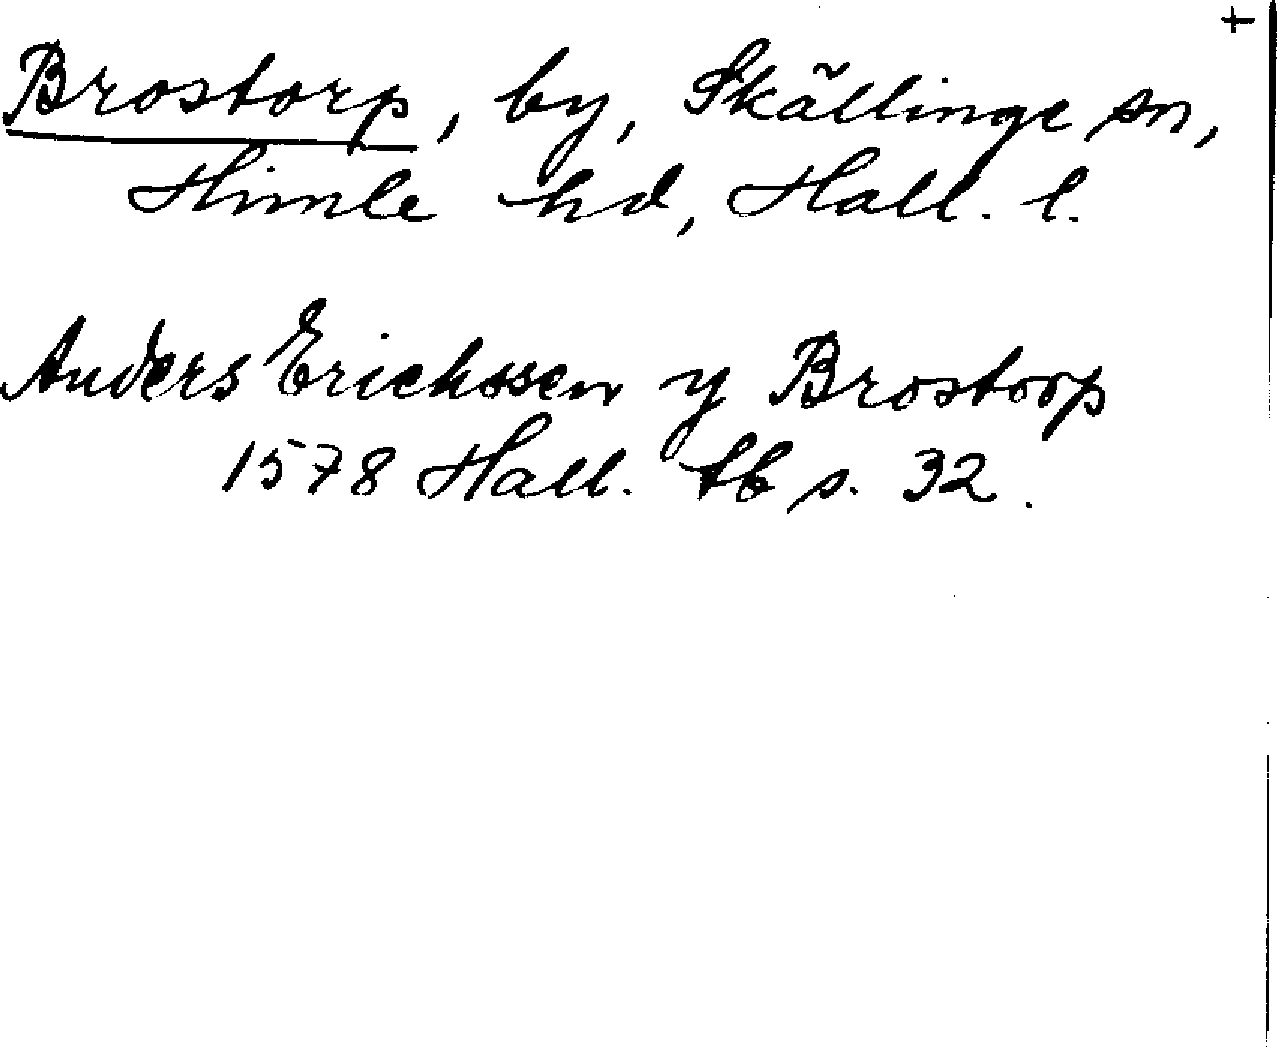 +
Brostorp, by, Skällinge sn,
Himle hd, Hall. l.
Anders Erickssen y Brostorp
1578 Hall. tb s. 32.